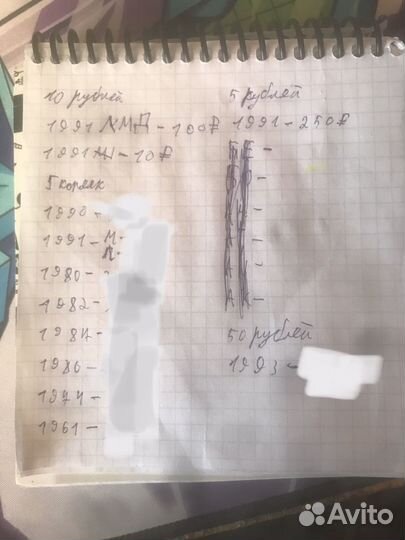 10 рублей
1991 ЛМД - 100₽
1991 М - 10₽
5 копеяк
1990 -
1991 - М-
Л-
1980 -
1982 -
1987 -
1986 -
1974 -
1961 -
5 рублей
1991 - 250₽
50 рублей
1993 -
Avito